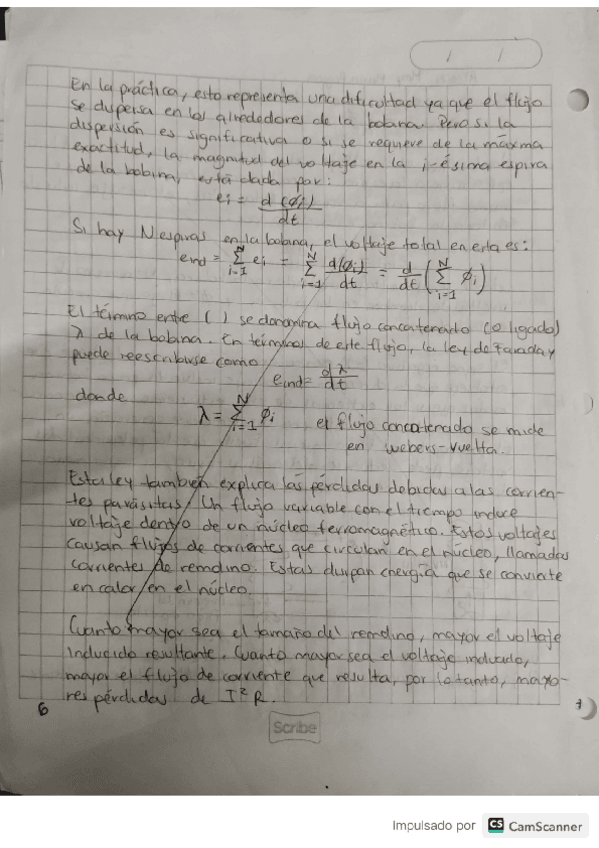 / /
En la práctica, esto representa una dificultad ya que el flujo
se dispersa en los alrededores de la bobina. Pero si la
dispersión es significativa o si se requiere de la máxima
exactitud, la magnitud del voltaje en la i-ésima espira
de la bobina, está dada por:
ei = d(φi)/dt
Si hay N espiras en la bobina, el voltaje total en esta es:
eind = Σ(i=1 a N) ei = Σ(i=1 a N) d(φi)/dt = d/dt (Σ(i=1 a N) φi)
El término entre ( ) se denomina flujo concatenado (o ligado)
λ de la bobina. En términos de este flujo, la ley de Faraday
puede reescribirse como
eind = dλ/dt
donde
λ = Σ(i=1 a N) φi el flujo concatenado se mide
en webers-vuelta.
Esta ley también explica las pérdidas debidas a las corrien-
tes parásitas. Un flujo variable con el tiempo induce
voltaje dentro de un núcleo ferromagnético. Estos voltajes
causan flujos de corrientes que circulan en el núcleo, llamadas
corrientes de remolino. Estas disipan energía que se convierte
en calor en el núcleo.
Cuanto mayor sea el tamaño del remolino, mayor el voltaje
inducido resultante. Cuanto mayor sea el voltaje inducido,
mayor el flujo de corriente que resulta, por lo tanto, mayo-
res pérdidas de I²R.
6
7
Scribe
Impulsado por CS CamScanner